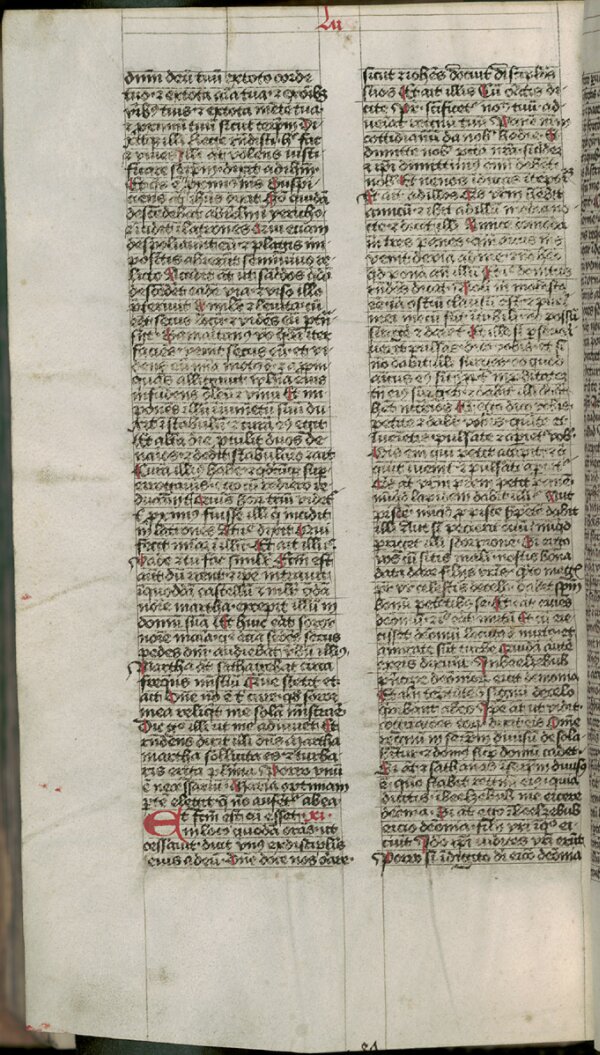 Lu
dnm deu tuu ex toto corde
tuo ⁊ ex tota aia tua ⁊ ex oibus
viribus tuis ⁊ ex tota mete tua
⁊ proximu tuu sicut teipm Di
xitqz illi Recte rndisti hoc fac
⁊ viues Ille at volens iusti
ficare seipm dixit ad ihm
Et quis e proximus meus Suspi
ciens at ihs dixit Ho quida
descedebat ab ihrlm i vericho
⁊ icidit i latrones Qui etiam
despoliauerut eu ⁊ plagis im
positis abierut semiuiuo re
licto Accidit at ut sacdos qda
descederet eade via ⁊ viso illo
pteriuit Similr ⁊ leuita cu
eet secus locu ⁊ videt eu ptn
siit Samaritanus vo qda iter
facies venit secus eu ⁊ vi
dens eu mia motus e ⁊ appin
quas alligauit vulna eius
infudens oleu ⁊ vinu Et im
pones illu i iumetu suu du
xit i stabulu ⁊ cura eius egit
Et alta die ptulit duos de
narios ⁊ dedit stabulario ⁊ ait
Cura illius habe ⁊ qdcuqz sup
erogaueris ego cu rediero re
dda tibi Quis hor triu videt
t primus fuisse illi qi incidit
in latrones At ille dixit Qui
fecit mia i illu Et ait illi ihs
Vade ⁊ tu fac simile Fcm est
aut du irent ⁊ ipe intrauit
i quodda castellu ⁊ mulr qda
noie martha excepit illum in
domu sua Et huic eat soror
noie maia q etia sedes secus
pedes dni audiebat vbu illius
Martha at sathagebat circa
freques misteriu Que stetit et
ait Dne no e t cure qd soror
mea reliqt me sola ministrare
Dic g illi ut me adiuuet Et
rndens dixit illi dns Martha
martha sollicita es ⁊ turba
ris erga plima Porro vnu
e necessariu Maria optimam
pte elegit q no aufet ab ea
Et fcm est cu esset xi
in loco quoda oras ut
cessauit dixit vnus ex discipulis
eius ad eu Dne doce nos orare
sicut ⁊ iohes docuit discipulos
suos Et ait illis Cu oratis di
cite Pr scificet nome tuu ad
ueiat regnu tuu Pane nrm
cottidianu da nob hodie Et
dimitte nob pcca nra siqdem
⁊ ipi dimittim omi debeti
nob Et ne nos iducas i teptoz
Et ait ad illos Quis vrm hebit
amicu ⁊ ibit ad illu media no
cte ⁊ dicet illi Amice comoda
m tres panes qm amicus meus
venit de via ad me ⁊ no heo
qd pona an illu Et ille deintus
rndes dicat Noli m molestus
ee ia ostiu clausu est ⁊ pueri
mei mecu sut i cubili no possu
surge ⁊ dare t Et ille si pseue
uerit pulsas dico vobis ⁊ si
no dabit illi surges eo quod
amicus eius sit ppt improbitate tn
eius surget ⁊ dabit illi quot
het necrios Et ego dico vobis
petite ⁊ dabit vob querite et
iueietis pulsate ⁊ apiet vob
Ois eni qui petit accipit ⁊ q
querit iuenit ⁊ pulsati apiet
Quis at ex vob prem petit pane
nuqd lapidem dabit illi Aut
pisce nuqd p pisce spete dabit
illi Aut si petierit ouu nuqd
porriget illi scorpione Si ergo
vos cu sitis mali nostis bona
data dare filiis vris qto magis
pr vr celestis de celo dabit spm
bonu petetibus se Et eat eicies
demoiu ⁊ illd eat mutu Et cu eie
cisset demoiu locutus e mutus et
admirate sut turbe Quida aute
ex eis dixerut In beelzebub
pncipe demonior eicit demonia
Et alii teptates signu de celo
querebant ab eo Ipe at ut vidit
cogitacoes eor dixit eis Omne
regnu in seipm diuisu desola
bitur ⁊ domus sup domu cadet
Si at ⁊ sathanas i seipm diuisus
e quo stabit regnu eius quia
dicitis i beelzebub me eicere
demoia Si at ego i beelzebub
eicio demoia filii vri i quo ei
ciut Ideo ipi iudices vri erunt
Porro si i digito di eicio demoia